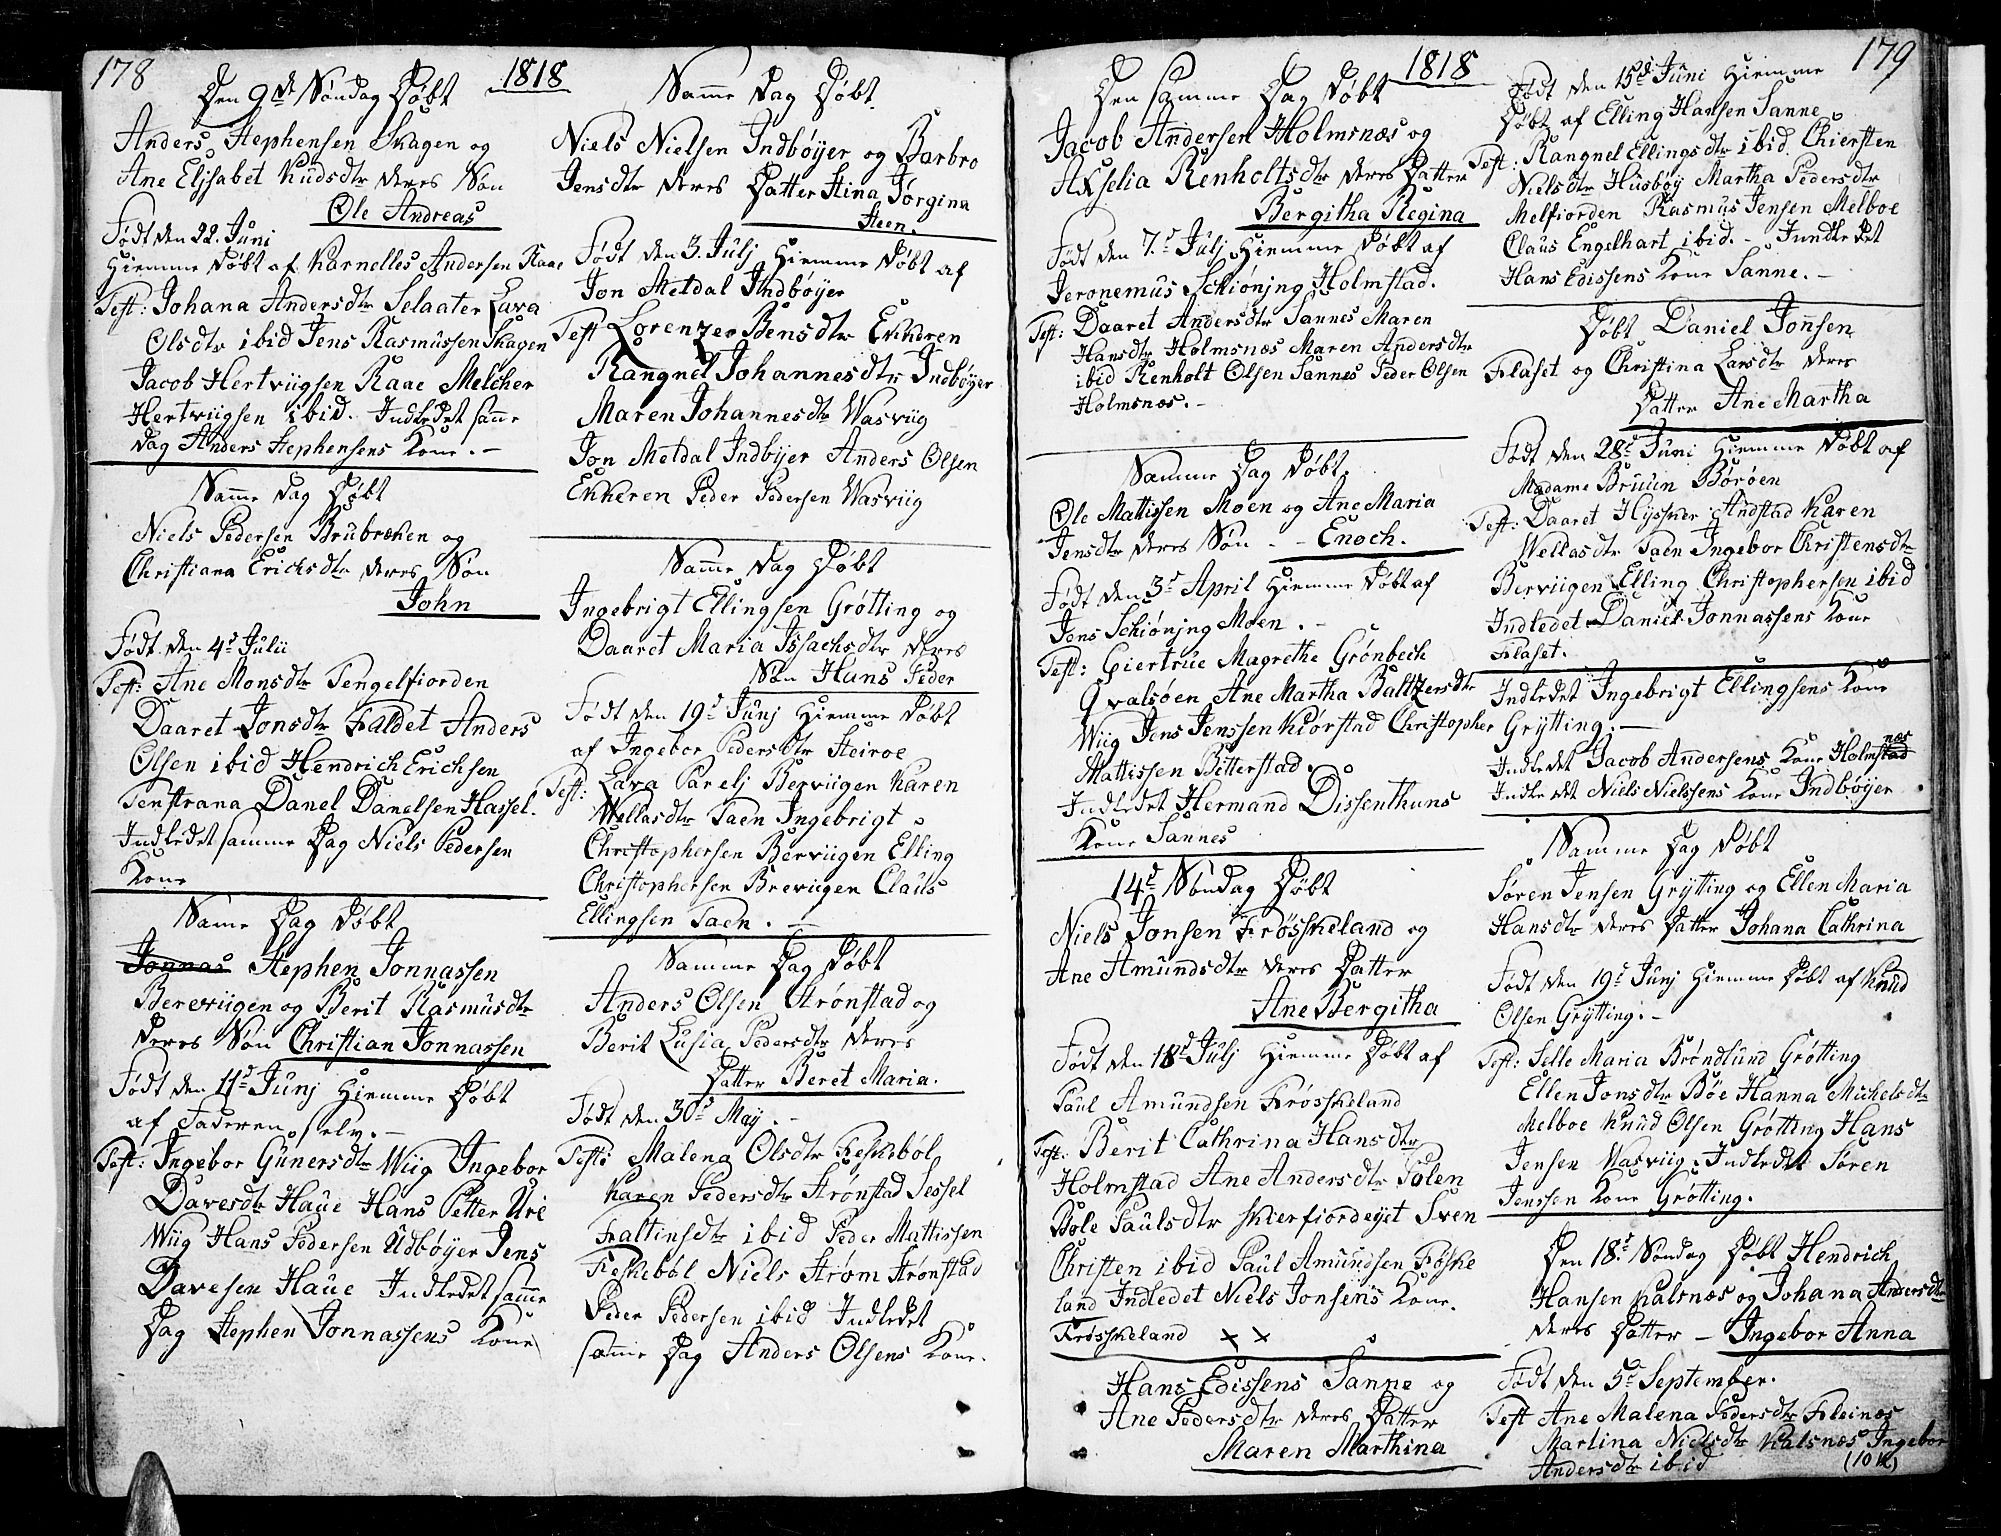 178
1818
Den 9de Søndag Døbt
Anders Stephensen Skagen og
Ane Elisabet Kudsdtr deres Søn
Ole Andreas
Født den 22. Juni
Hiemme Døbt af Karnelles Andersen Raae
Test: Johana Andersdtr Selaater Lava
Olsdtr ibid Jens Rasmussen Skagen
Jacob Hertviigsen Raae Melcher
Hertviigsen ibid. Indledet samme
Dag Anders Stephensens Kone.-
Samme Dag Døbt
Niels Pedersen Brubræken og
Christiana Erichsdtr deres Søn
John
Født den 4d Julii
Test: Ane Monsdtr Tengelfiorden
Daaret Jonsdtr Faldet Anders
Olsen ibid Hendrich Erichsen
Tenstrana Danel Danelsen Hassel.
Indledet samme Dag Niels Pedersen
Kone
Same Dag Døbt
Jonnas Stephen Jonnassen
Bereviigen og Berit Rasmusdtr
deres Søn Christian Jonnassen
Født den 11d Junj Hiemme Døbt
af Faderen selv.-
Test: Ingebor Gunersdtr Wiig Ingebor
Davesdtr Haue Hans Petter Uri
Wiig Hans Pedersen Udbøyer Jens
Davesen Haue Indledet samme
Dag Stephen Jonnassens Kone
Samme Dag Døbt.
Niels Nielsen Indbøyer og Barbro
Jensdtr deres Datter Stina Jørgina
Steen.
Født den 3. Julj Hiemme Døbt af
Jon Metdal Indbøyer
Test Lorenzeo Bensdtr Ekkeren
Rangnel Johannesdtr Indbøyer
Maren Johannesdtr Wasviig
Jon Metdal Indbyer Anders Olsen
Ekkeren Peder Pedersen Wasviig
Samme Dag Døbt
Ingebrigt Ellingsen Grøtting og
Daaret Maria Issachsdtr deres
Søn Hans Peder
Født den 19d Junj Hiemme Døbt
af Ingebor Pedersdtr Steiroe
Test: Lava Parelj Berviigen Karen
Wellasdtr Taen Ingebrigt
Christophersen Berviigen Elling
Christophersen Breviigen Claus
Ellingsen Taen.-
Samme Dag Døbt
Anders Olsen Strønstad og
Berit Lusia Pedersdtr deres
Datter Beret Maria.
Født den 30d May.-
Test: Malena Olsdtr Feskebøl
Karen Pedersdtr Strønstad Sessel
Faltinsdtr ibid Peder Mattissen
Feskebøl Niels Strøm Strønstad
Peder Pedersen ibid Indledet
samme Dag Anders Olsens Kone.
1818
179
Den samme Dag Døbt
Jacob Andersen Holmsnæs og
Axselia Renholtsdtr deres Datter
Bergitha Regina
Født den 7d Julj Hiemme Døbt af
Jeronemus Schiønjng Holmstad.
Test: Daaret Andersdtr Sannes Maren
Hansdtr Holmsnæs Maren Andersdtr
ibid Renholt Olsen Sannes Peder Olsen
Holmsnæs.-
Samme Dag Døbt
Ole Mattissen Moen og Ane Maria
Jensdtr deres Søn - - Enoch.
Født den 3d April Hiemme Døbt af
Jens Schiønjng Moen.-
Test: Giertrue Magrethe Grønbech
Qvalsøen Ane Martha Baltzersdtr
Wiig Jens Jenssen Kiørstad Christopher
Mattissen Bitterstad.
Indledet Hermand Dissenthuns
Kone Sannes
14d Søndag Døbt
Niels Jonsen Frøsskeland og
Ane Amundsdtr deres Datter
Ane Bergitha
Født den 18d Julj Hiemme Døbt af
Paul Amundsen Frøsskeland
Test: Berit Cathrina Hansdtr
Holmstad Ane Andersdtr Solen
Bole Paulsdtr Skierfiordeyet Sven
Christen ibid Paul Amundsen Frøske
land Indledet Niels Jonsens Kone.
Frøsskeland x x
Hans Edissens Sanne og
Ane Pedersdtr deres Datter
Maren Marthina
Født den 15d Juni Hiemme
Døbt af Elling Hansen Sanne
Test: Rangnel Ellingsdtr ibid. Chiersten
Nielsdtr Husbøy Martha Pedersdtr
Melfiorden Rasmus Jensen Melboe
Claus Engelhart ibid.- Indledet
Hans Edissens Kone Sanne.-
Døbt Daniel Jonsen
Flaset og Christina Larsdtr deres
Datter Ane Martha
Født den 28d Juni Hiemme Døbt af
Madame Bruun Børøen
Test: Daaret Hyssner Andstad Karen
Wellasdtr Taen Ingebor Christensdtr
Berviigen Elling Christophersen ibid
Indledet Daniel Jonnassens Kone
Flaset.
Indledet Ingebrigt Ellingsens Kone
Grytting.-
Indledet Jacob Andersens Kone Holmstad næs
Indledet Niels Nielssens Kone Indbøyer
Samme Dag Døbt
Søren Jensen Grytting og Ellen Maria
Hansdtr deres Datter Johana Cathrina
Født den 19d Junj Hiemme Døbt af Knud
Olsen Grytting.-
Test: Selle Maria Brøndlund Grøtting
Ellen Jonsdtr Bøe Hanna Michelsdtr
Melboe Knud Olsen Grøtting Hans
Jensen Wasviig. Indledet Søren
Jenssen Kone Grøtting.
Den 18d Søndag Døbt Hendrich
Hansen Kalsnæs og Johana Andersdtr
deres Datter - Ingebor Anna
Født den 5d September.
Test Ane Malena Pedersdtr Fleinæs
Martina Nielsdtr Kalsnæs Ingebor
Andersdtr ibid